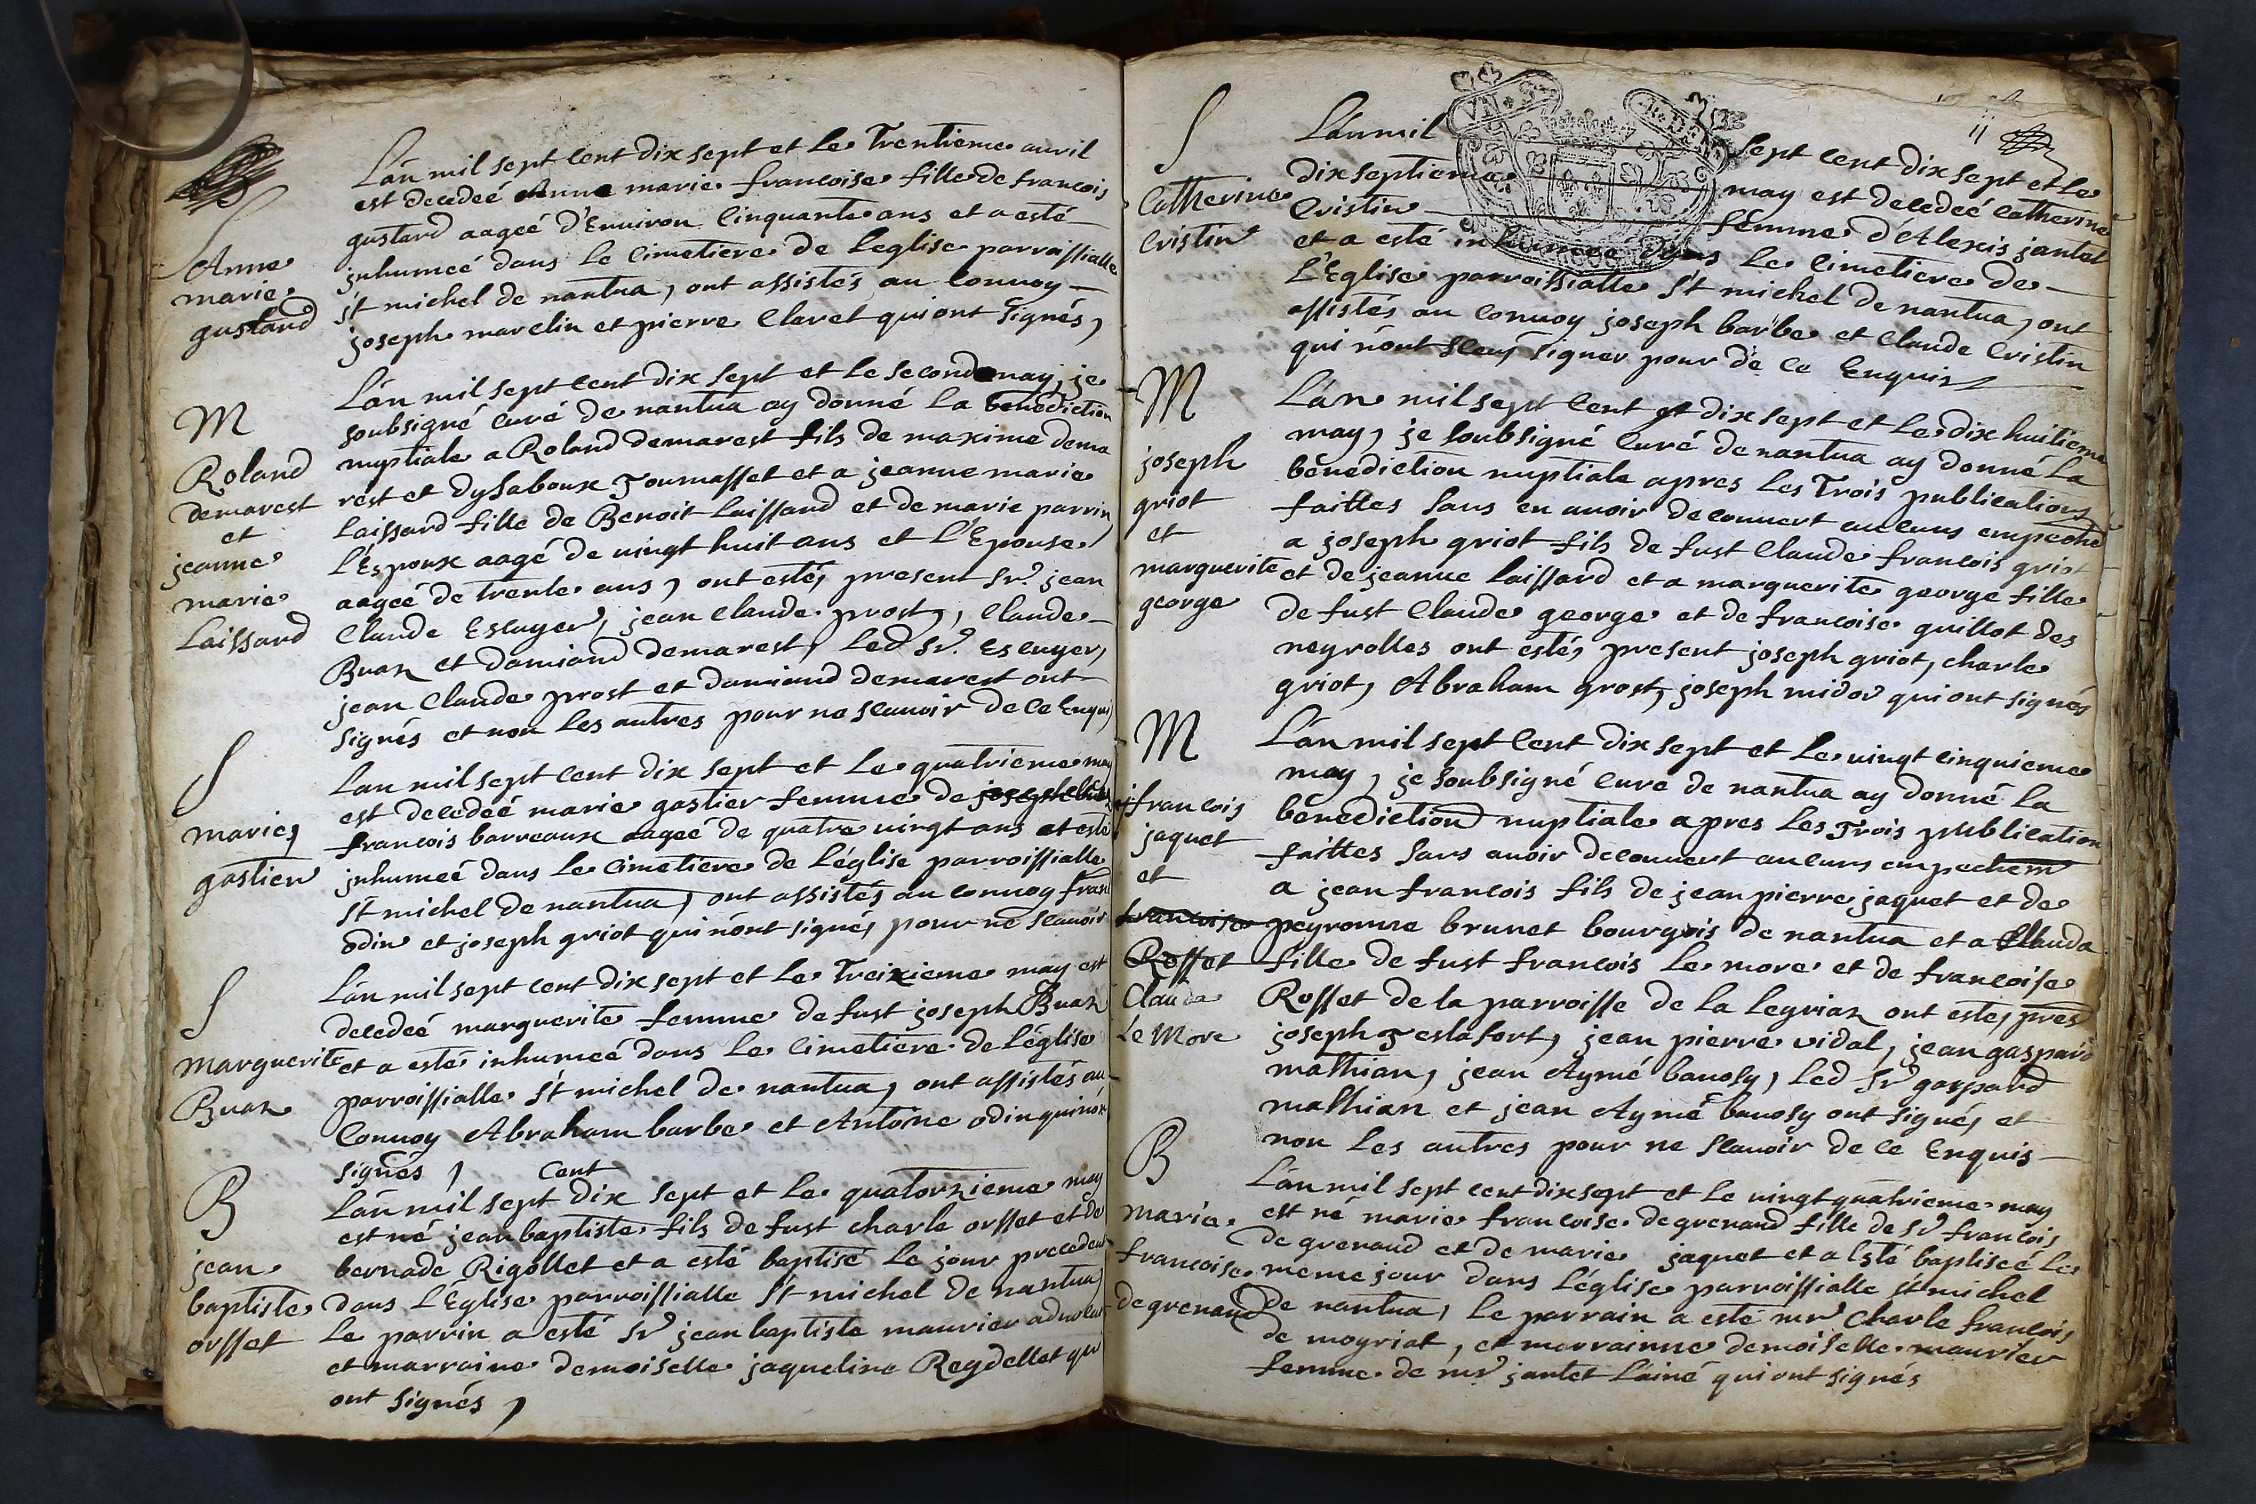 S
Anne
marie
gustard
Lán mil sept cent dix sept et le Trentieme auril
est decedeé Anne marie francoise fille de francois
gustard aageé d'Enuiron Cinquante ans et a esté
jnhumeé dans le Cimetiere de leglise parroissialle
st michel de nantua, ont assistés au Conuoy
joseph marclin et pierre Claret qui ont signés,
M
Roland
demarest
et
jeanne
marie
Laissard
Lán mil sept cent dix sept et le second may, je
soubsigné Curé de nantua ay donné la benediction
nuptiale a Roland demarest fils de maxime dema
rest et dysaboux Tournasset et a jeanne marie
Laissard fille de Benoit Laissard et de marie parrin
L'Espoux aagé de uingt huit ans et l'Epouse
aageé de trente ans, ont estés present sr. jean
Claude Escuyer, jean Claude prost, Claude
Buaz et damiand demarest, led sr. Escuyer,
jean Claude prost et damiand demarest ont
signés et non les autres pour ne scauoir de ce Enquis
S
marie
gastier
Lan mil sept cent dix sept et le quatrieme may
est decedeé marie gastier femme de joseph
francois barreaux aageé de quatre uingt ans et esté
jnhumeé dans le Cimetiere de léglise parroissialle
st michel de nantua, ont assistés au conuoy fran
odin et joseph griot qui nónt signés pour ne scauoir
S
Marguerite
Buaz
Lán mil sept cent dix sept et le Treizieme may est
decedeé marguerite femme de fust joseph Buaz
et a esté inhumeé dans le Cimetiere de léglise
parroissialle st michel de nantua, ont assistés au
Conuoy Abraham barbe et Antoine odin qui nónt
signés,
B
jean
baptiste
orsset
Cent
Lán mil sept dix sept et le quatorzieme may
est né jean baptiste fils de fust charle orsset et de
bernade Rigollet et a esté baptisé le jour precedent
dans L'Eglise parroissialle st michel de nantua
le parrin a esté sr jean baptiste maurier aduocat
et marraine demoiselle jaqueline Reydellet qui
ont signés,
11
S
Catherine
Cristin
Lán mil sept cent dix sept et le
dixseptieme may est decedeé Catherine
Cristin femme d'Alexis jantet
et a esté inhumeé dans le Cimetiere de
L'Eglise parroissialle st michel de nantua, ont
assistés au conuoy joseph barbe et Claude Cristin
qui nónt sceus signer pour de ce Enquis
M
joseph
griot
et
marguerite
george
Lán mil sept Cent et dix sept et le dix huitieme
may, je soubsigné Curé de nantua ay donné la
benediction nuptiale apres les Trois publications
faittes sans en auoir decouuert aucuns empeche
a joseph griot fils de fust Claude francois griot
et de jeanne Laissard et a marguerite george fille
de fust Claude george et de francoise guillot des
neyrolles ont estés present joseph griot, charle
griot, Abraham grost, joseph midor qui ont signés
M
jfrancois
jaquet
et
francoise
Rosset
Clauda
Le More
Lán mil sept Cent dix sept et le uingt cinquieme
may, je soubsigné Cure de nantua ay donné la
benediction nuptiale apres les Trois publication
faittes sans auoir decouuert aucuns empechem
a jean francois fils de jean pierre jaquet et de
peyronne brunet bourgois de nantua et a Clauda
fille de fust francois le more et de francoise
Rosset de la parroisse de la legriaz ont estés pres
joseph Testafort, jean pierre vidal, jean gaspard
mathian, jean Aymé bauosy, led sr gaspard
mathian et jean Aymé bauosy ont signés et
non les autres pour ne scauoir de ce Enquis
B
marie
francoise
degrenaud
Lán mil sept cent dix sept et le uingt quatrieme may
est né marie francoise degrenaud fille de sr francois
de grenaud et de marie jaquet et a Esté baptiseé le
meme jour dans léglise parroissialle st michel
de nantua, le parrain a esté mr Charle francois
de moyriat, et marrainne demoiselle maurier
femme de mr jantet Lainé qui ont signés